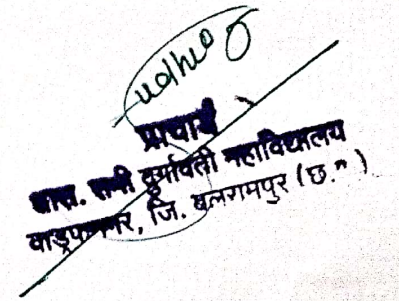 प्राचार्य
शास. रानी दुर्गावती महाविद्यालय
वाड्रफनगर, जि. बलरामपुर (छ.ग.)